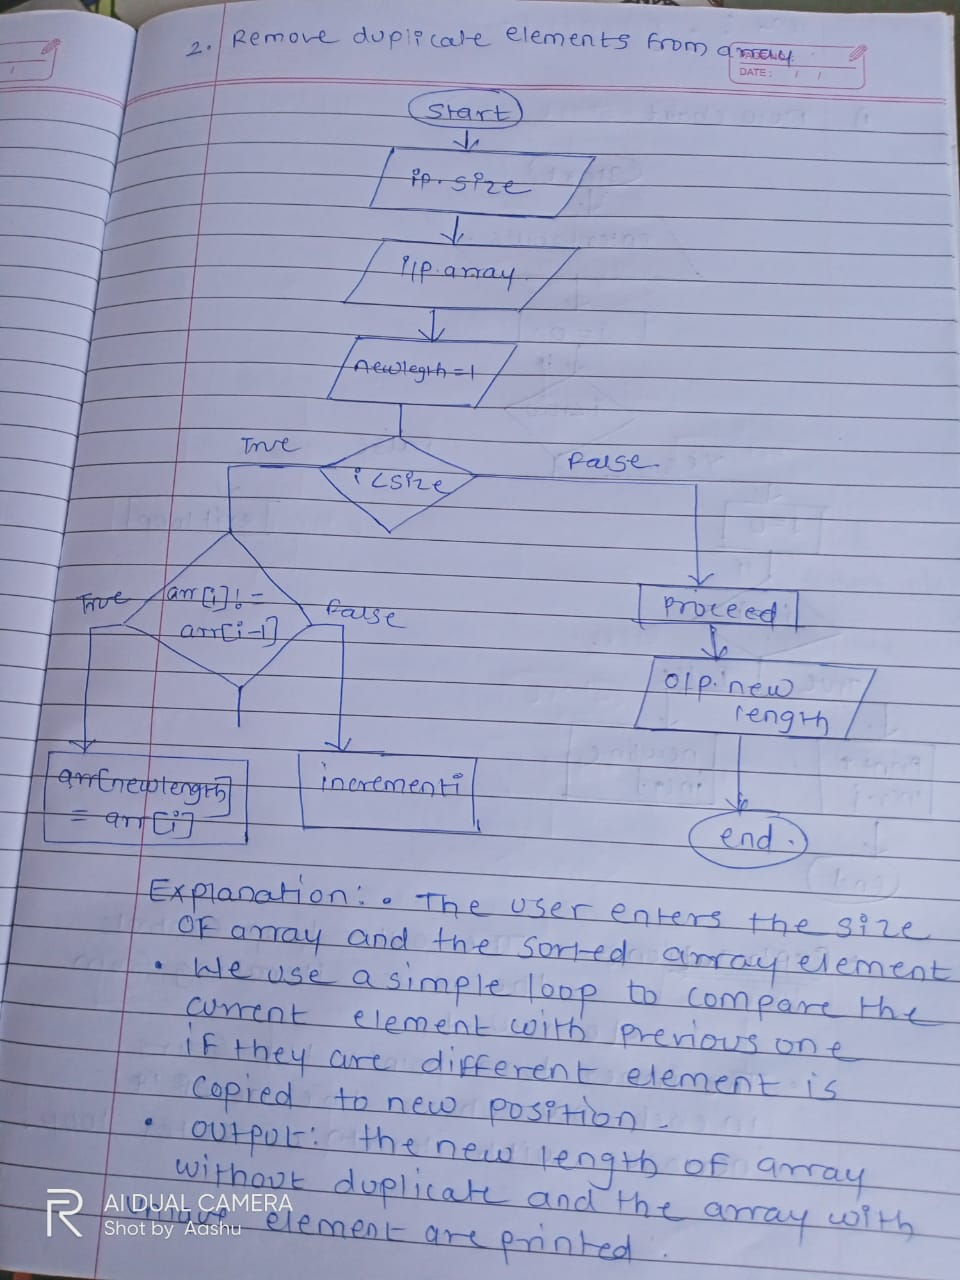 2. Remove duplicate elements from array
DATE: / /
Start
ip. size
i/p. array
newlegth = 1
True
False
i < size
True
arr[i] ! =
arr[i-1]
False
proceed
o/p. new
length
arr[newlength]
= arr[i]
increment i
end.
Explanation: • The user enters the size
of array and the sorted array element
• We use a simple loop to compare the
current element with previous one
if they are different element is
copied to new position.
• output: the new length of array
without duplicate and the array with
element are printed.
AI DUAL CAMERA
Shot by Aashu